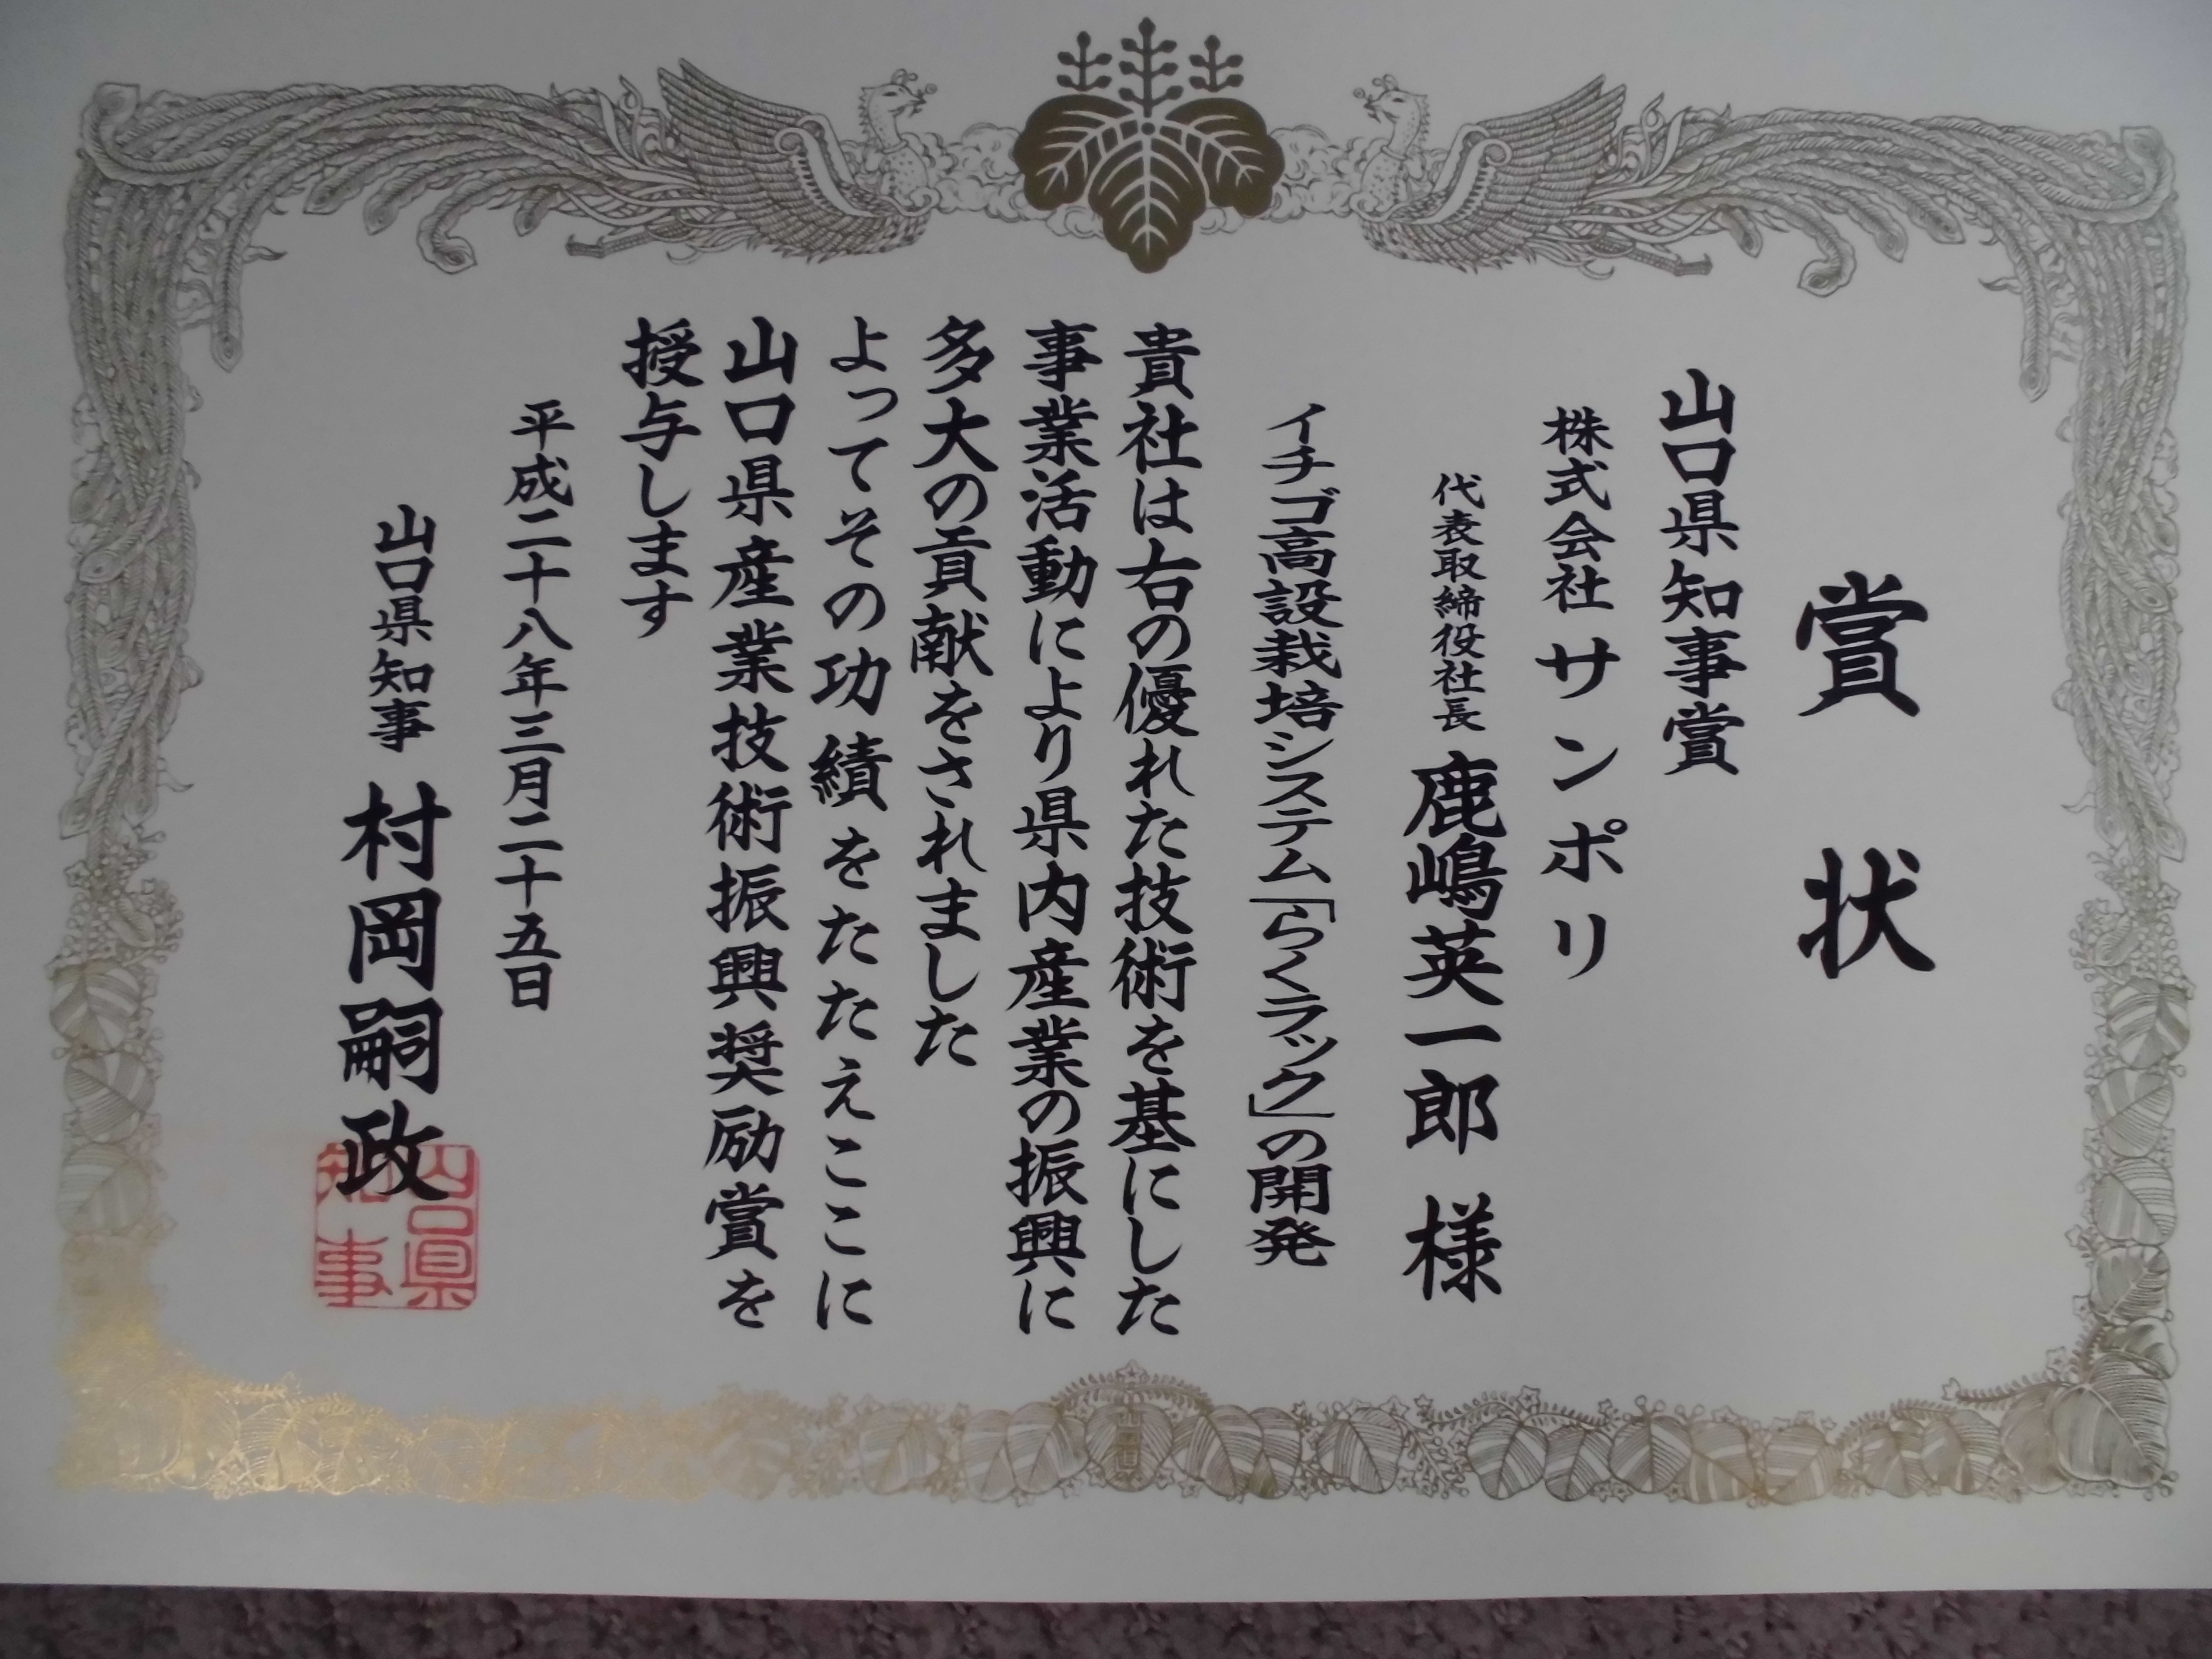 賞状
山口県知事賞
株式会社 サンポリ
代表取締役社長 鹿嶋英一郎 様
イチゴ高設栽培システム「らくラック」の開発
貴社は右の優れた技術を基にした
事業活動により県内産業の振興に
多大の貢献をされました
よってその功績をたたえここに
山口県産業技術振興奨励賞を
授与します
平成二十八年三月二十五日
山口県知事 村岡嗣政
山口県
知事